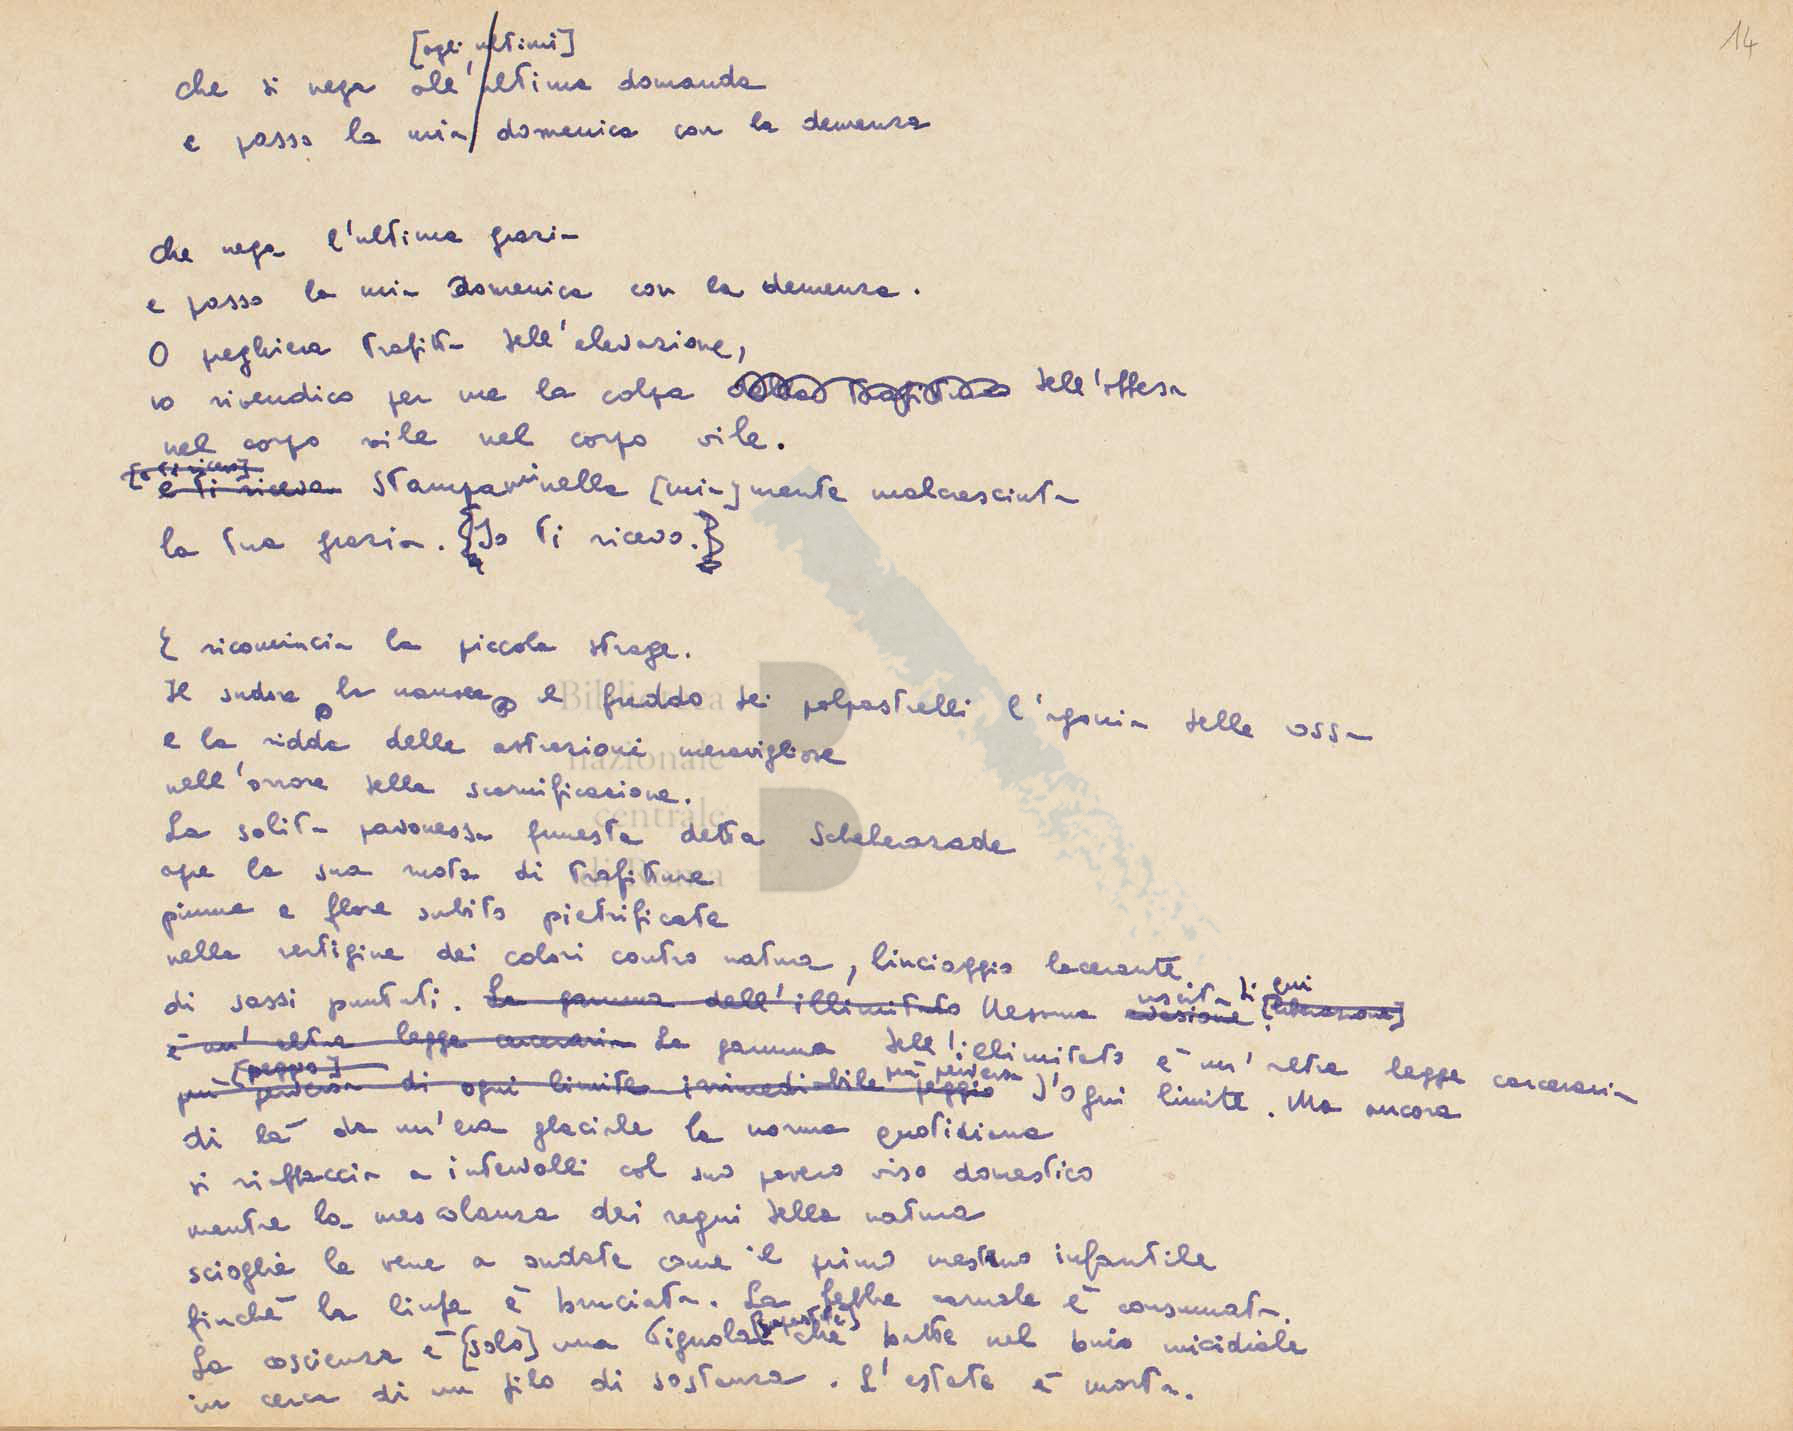 14
[agli ultimi]
che si nega all'ultima domanda
e passo la mia domenica con la demenza
che nega l'ultima grazia
e passo la mia domenica con la demenza.
O preghiera trafitta dell'elevazione,
io rivendico per me la colpa della trafittura dell'offesa
nel corpo vile nel corpo vile.
[io ti ricevo]
e ti riceva Stampami nella [mia] mente malcresciuta
la tua grazia. {Io ti ricevo.}
E ricomincia la piccola strage.
Il sudore la nausea e il freddo dei polpastrelli l'agonia delle ossa
e la ridda delle astrazioni meravigliose
nell'orrore della scarnificazione.
La solita pavonessa funesta detta Scheherazade
apre la sua ruota di trafitture
piume e flore subito pietrificate
nella vertigine dei colori contro natura, linciaggio lacerante
uscita di qui
di sassi puntuti. La gamma dell'illimitato Nessuna evasione. [liberazione]
è un'altra legge carceraria La gamma dell'illimitato è un'altra legge carceraria
[peggio] più perversa
più perversa di ogni limite irrimediabile peggio d'ogni limite. Ma ancora
di là da un'era glaciale la norma quotidiana
si riaffaccia a intervalli col suo povero viso domestico
mentre la mescolanza dei regni della natura
scioglie le vene a ondate come il primo mestruo infantile
finché la linfa è bruciata. La febbre carnale è consumata.
La coscienza è [solo] una tignola che batte nel buio micidiale
in cerca di un filo di sostanza. L'estate è morta.
Biblioteca
nazionale
centrale
di Roma